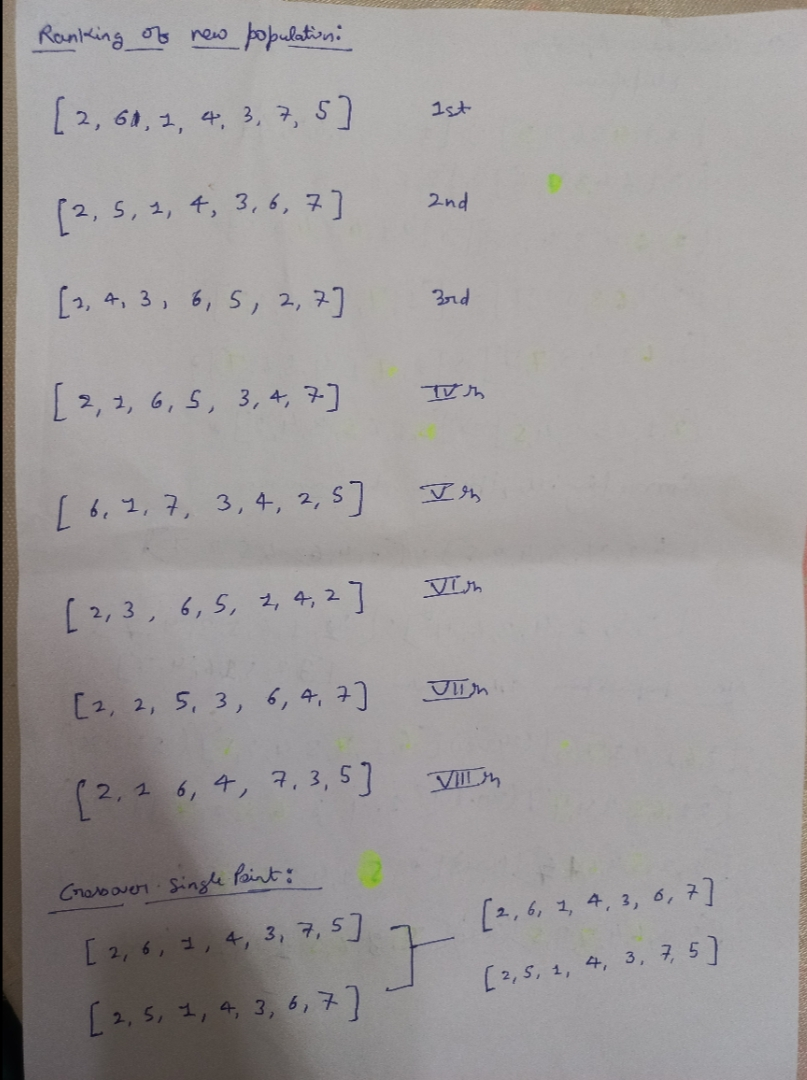 Ranking of new population:
[2, 6, 1, 4, 3, 7, 5] 1st
[2, 5, 1, 4, 3, 6, 7] 2nd
[1, 4, 3, 6, 5, 2, 7] 3rd
[2, 1, 6, 5, 3, 4, 7] IVth
[6, 1, 7, 3, 4, 2, 5] Vth
[2, 3, 6, 5, 1, 4, 2] VIth
[2, 2, 5, 3, 6, 4, 7] VIIth
[2, 1 6, 4, 7, 3, 5] VIIIth
Crossover Single Point:
[2, 6, 1, 4, 3, 7, 5] [2, 6, 1, 4, 3, 6, 7]
[2, 5, 1, 4, 3, 6, 7] [2, 5, 1, 4, 3, 7, 5]